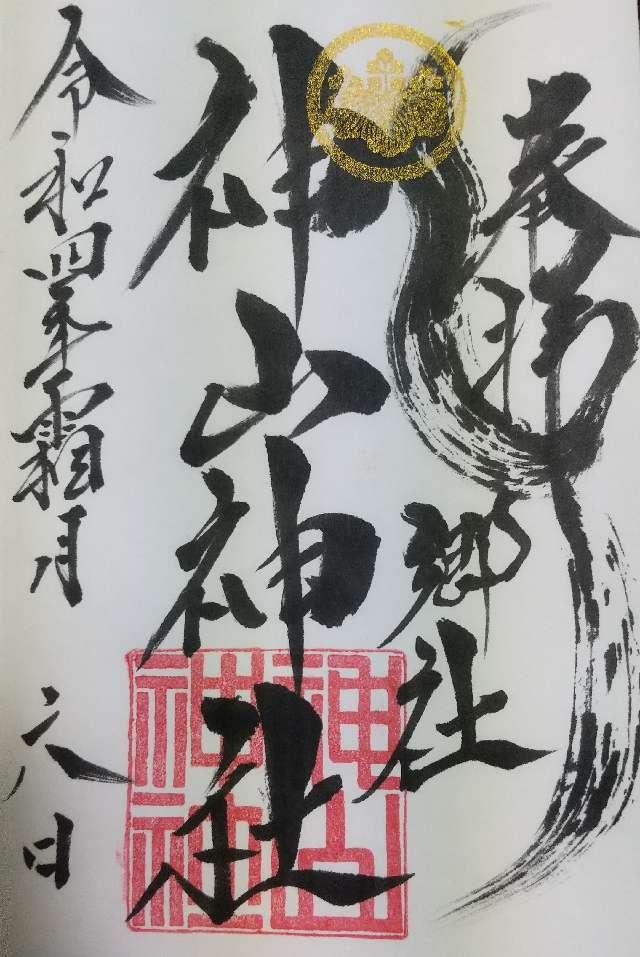 奉拝
郷社
神山神社
神山
神社
令和四年霜月
六日